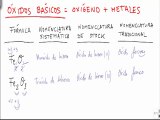 ÓXIDOS BÁSICOS = OXÍGENO + METALES
FÓRMULA NOMENCLATURA SISTEMÁTICA NOMENCLATURA DE STOCK NOMENCLATURA TRADICIONAL
Fe O Óxido de hierro Óxido de hierro (II) Óxido ferroso
Fe₂O₃ Trióxido de dihierro Óxido de hierro (III) Óxido férrico